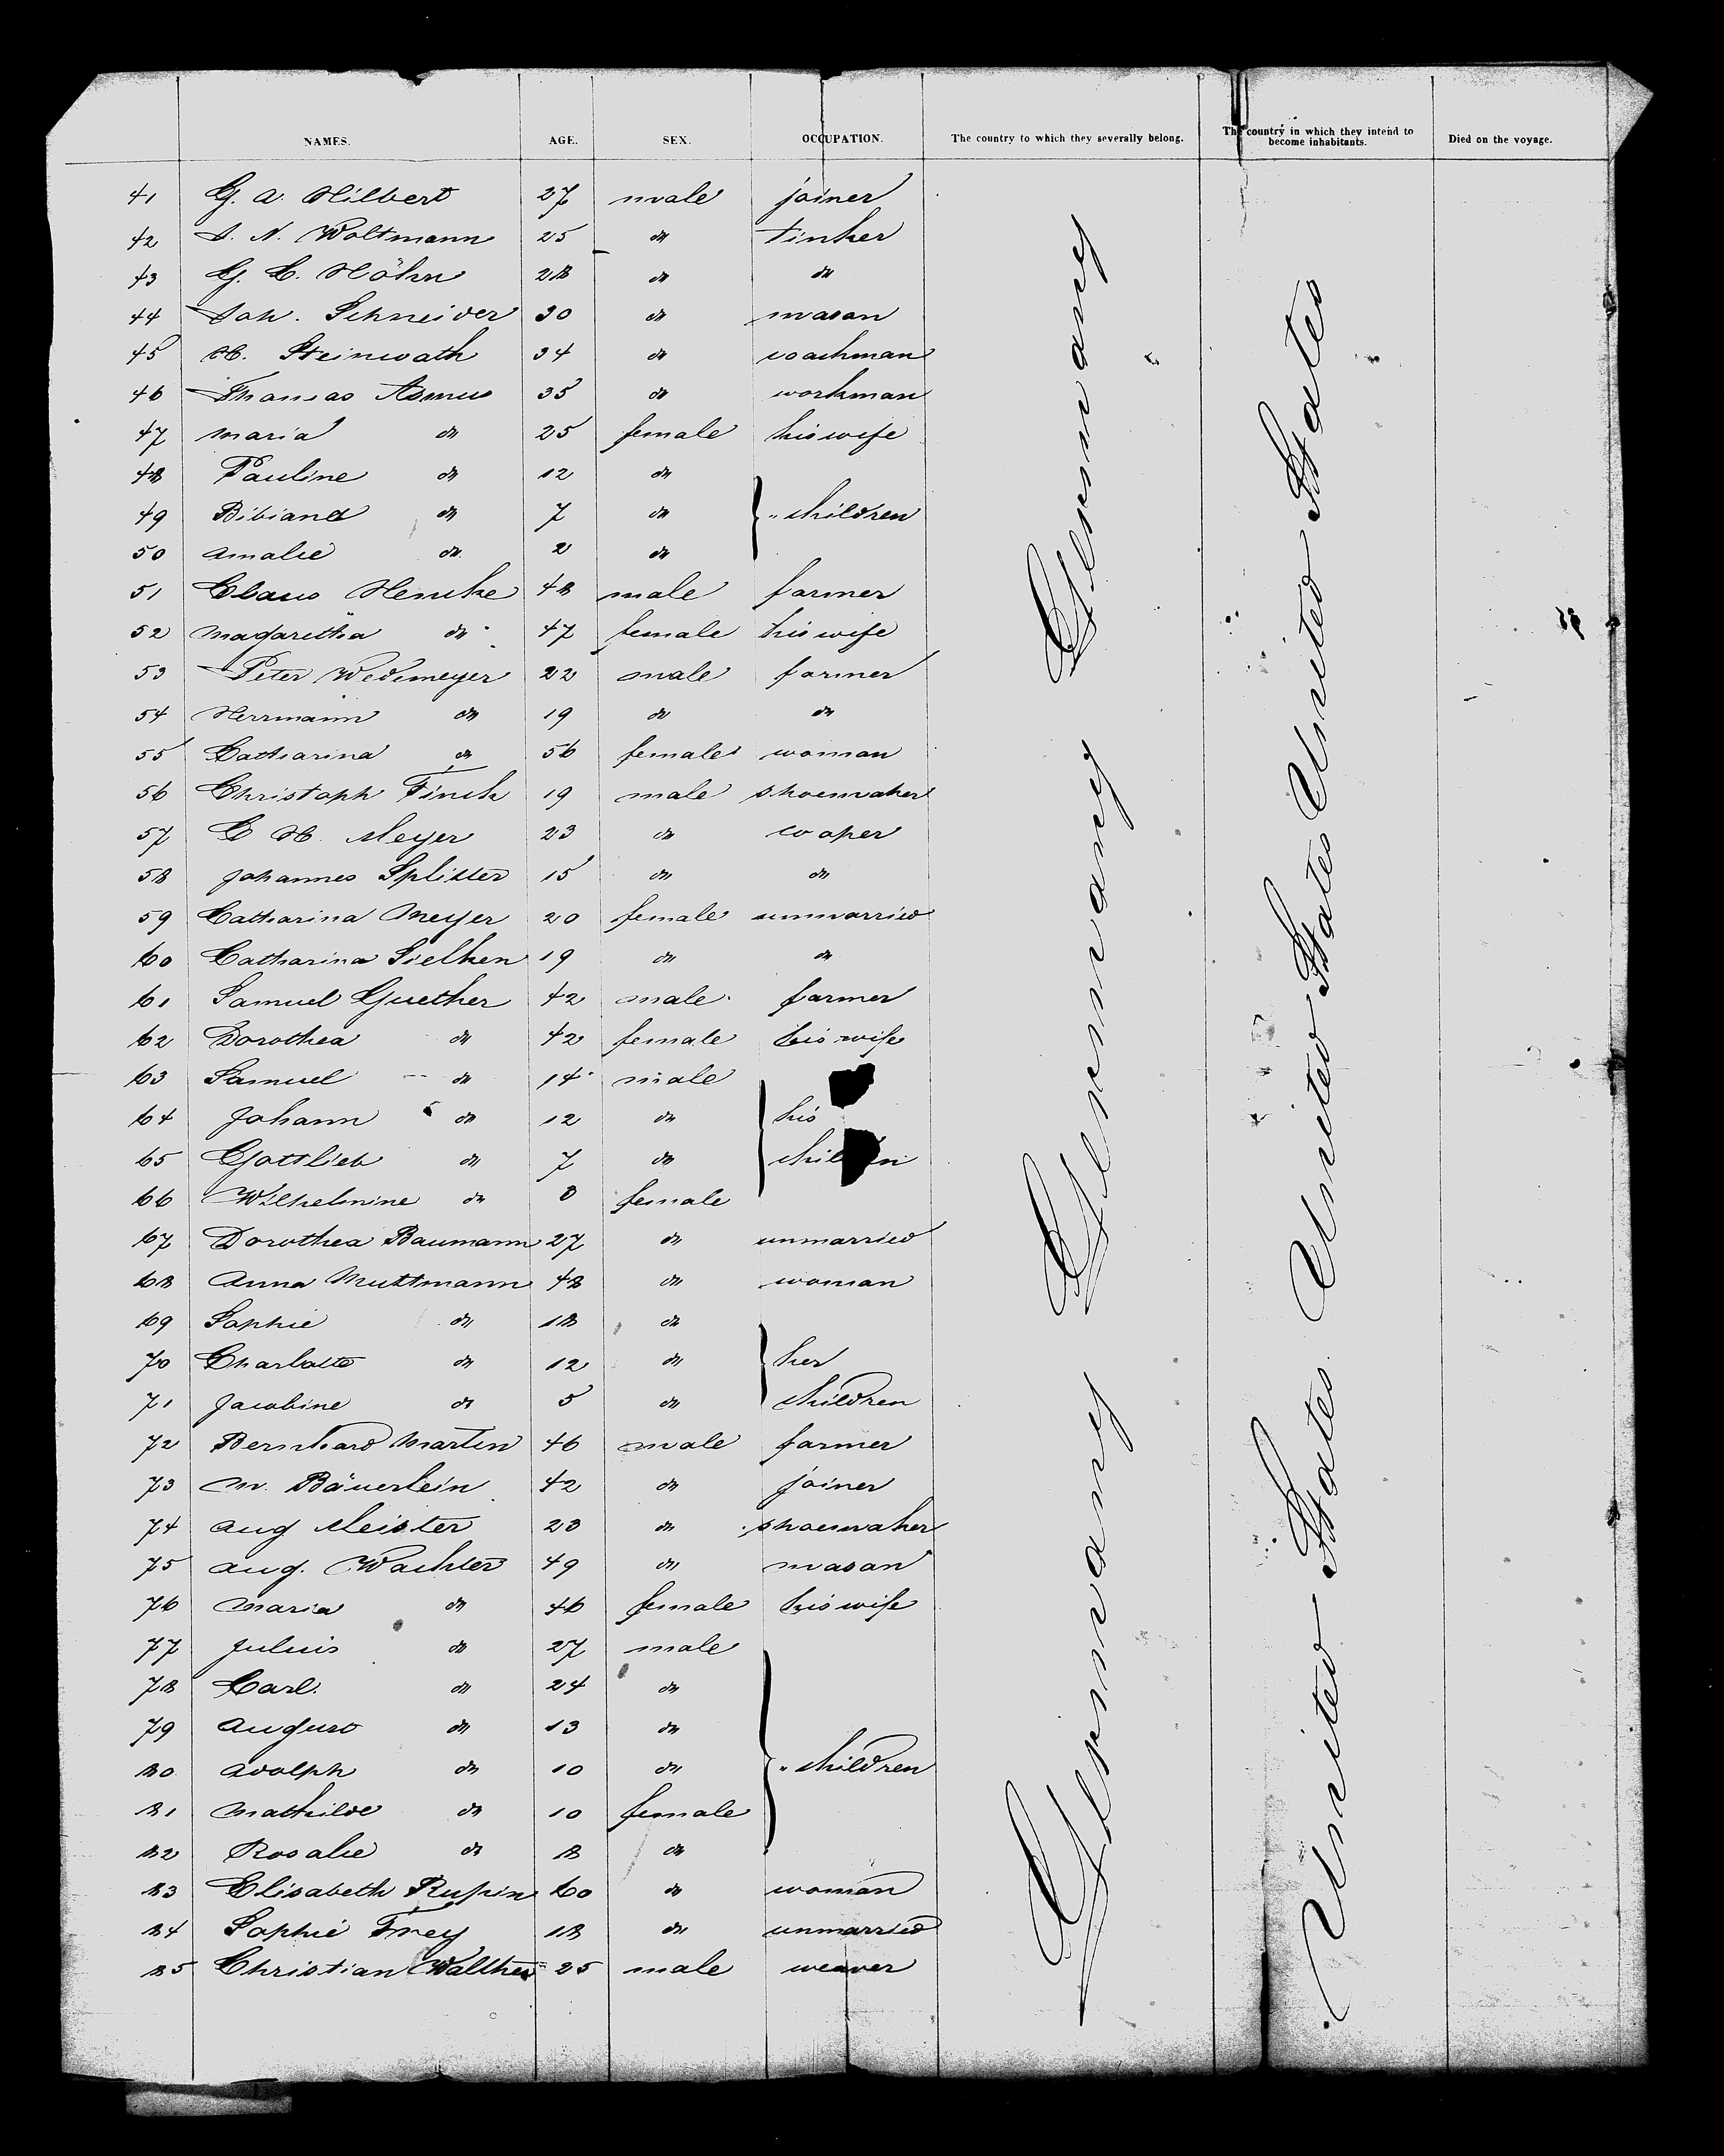 NAMES. AGE. SEX. OCCUPATION. The country to which they severally belong. The country in which they intend to become inhabitants. Died on the voyage.
41 G. A. Hilbert 27 male joiner
42 A. N. Woltmann 25 do tinker
43 G. C. Höhn 28 do do
44 Joh. Schneider 30 do mason
45 H. Steinwath 34 do coachman
46 Thomas Asmus 35 do workman
47 Maria do 25 female his wife
48 Pauline do 12 do
49 Bibiana do 7 do " children
50 Amalie do 2 do
51 Claus Hencke 48 male farmer
52 Magaretha do 47 female his wife
53 Peter Wedemeyer 22 male farmer
54 Herrmann do 19 do do
55 Catharina do 56 female woman
56 Christoph Finck 19 male shoemaker
57 C H. Meyer 23 do cooper
58 Johannes Splitter 15 do do
59 Catharina Meyer 20 female unmarried
60 Catharina Sielken 19 do do
61 Samuel Guether 42 male farmer
62 Dorothea do 42 female his wife
63 Samuel do 14 male
64 Johann do 12 do his
65 Gottlieb do 7 do children
66 Wilhelmine do female
67 Dorothea Baumann 27 do unmarried
68 Anna Muttmann 48 do woman
69 Sophie do 18 do
70 Charlotte do 12 do her
71 Jacobine do 5 do children
72 Bernhard Martin 46 male farmer
73 M. Bäuerlein 42 do joiner
74 Aug Meister 23 do shoemaker
75 Aug. Wachter 49 do mason
76 Maria do 46 female his wife
77 Julius do 27 male
78 Carl. do 24 do
79 August do 13 do
80 Adolph do 10 do " children
81 Mathilde do 10 female
82 Rosalie do 8 do
83 Elisabeth Rupin 60 do woman
84 Sophie Frey 18 do unmarried
85 Christian Walther 25 male weaver
Germany Germany Germany
United States United States United States